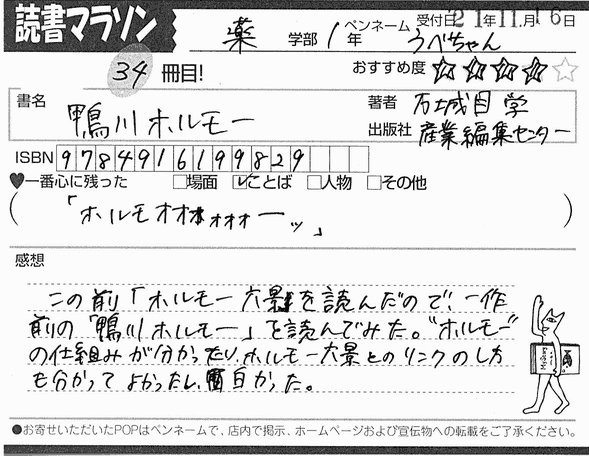 読書マラソン
薬 学部 1年 ペンネーム うべちゃん 受付日 '21年11月16日
34 冊目! おすすめ度 ★★★★☆
書名 鴨川ホルモー
著者 万城目学
出版社 産業編集センター
ISBN 9784916199829
♥一番心に残った □場面 ☑ことば □人物 □その他
(「ホルモオオオォォォーーッ」)
感想
この前「ホルモー六景」を読んだので、一作
前の「鴨川ホルモー」を読んでみた。"ホルモー"
の仕組みが分かったり、ホルモー六景とのリンクのし方
も分かってよかったし、面白かった。
●お寄せいただいたPOPはペンネームで、店内で掲示、ホームページおよび宣伝物への転載をご了承ください。